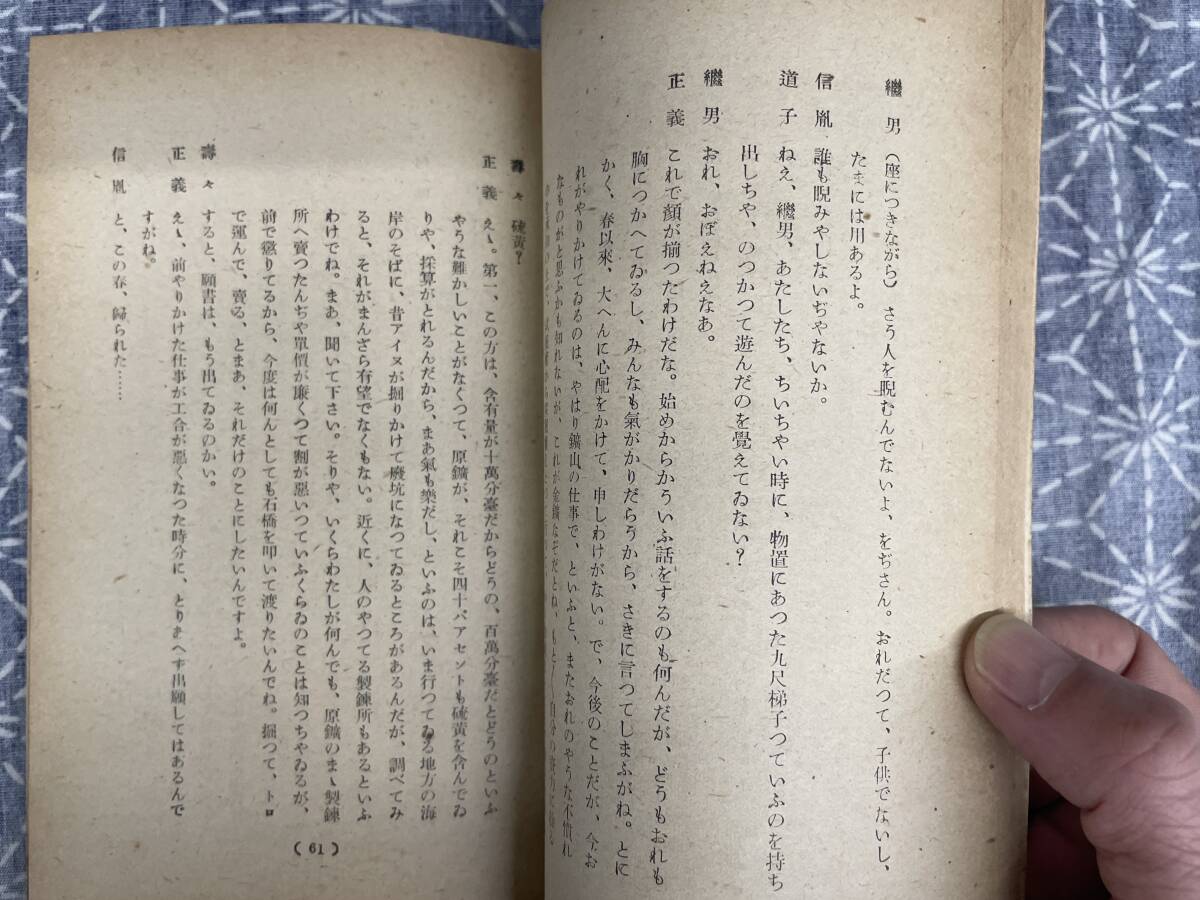 繼男 (座につきながら) さう人を睨むんでないよ、をぢさん。おれだつて、子供でないし、
たまには用あるよ。
信胤 誰も睨みやしないぢやないか。
道子 ねえ、繼男、あたしたち、ちいちやい時に、物置にあつた九尺梯子つていふのを持ち
出しちや、のつかつて遊んだのを覺えてゐない?
繼男 おれ、おぼえねえなあ。
正義 これで顏が揃つたわけだな。始めからかういふ話をするのも何んだが、どうもおれも
胸につかへてゐるし、みんなも氣がかりだらうから、さきに言つてしまふがね。とに
かく、春以來、大へんに心配をかけて、申しわけがない。で、今後のことだが、今お
れがやりかけてゐるのは、やはり鑛山の仕事で、といふと、またおれのやうな不慣れ
なものがと思ふかも知れないが、これが金鑛なぞだとね、もと〱自分の
壽々 硫黃?
正義 えゝ。第一、この方は、含有量が十萬分臺だからどうの、百萬分臺だとどうのといふ
やうな難かしいことがなくつて、原鑛が、それこそ四十パアセントも硫黃を含んでゐ
りや、採算がとれるんだから、まあ氣も樂だし、といふのは、いま行つてゐる地方の海
岸のそばに、昔アイヌが掘りかけて廢坑になつてゐるところがあるんだが、調べてみ
ると、それがまんざら有望でなくもない。近くに、人のやつてる製錬所もあるといふ
わけでね。まあ、聞いて下さい。そりや、いくらわたしが何んでも、原鑛のまゝ製錬
所へ賣つたんぢや單價が廉くつて割が惡いつていふくらゐのことは知つちやゐるが、
前で懲りてるから、今度は何んとしても石橋を叩いて渡りたいんでね。掘つて、トロ
で運んで、賣る、とまあ、それだけのことにしたいんですよ。
壽々 すると、願書は、もう出てゐるのかい。
正義 えゝ、前やりかけた仕事が工合が惡くなつた時分に、とりあへず出願してはあるんで
すがね。
信胤 と、この春、歸られた……
(61)